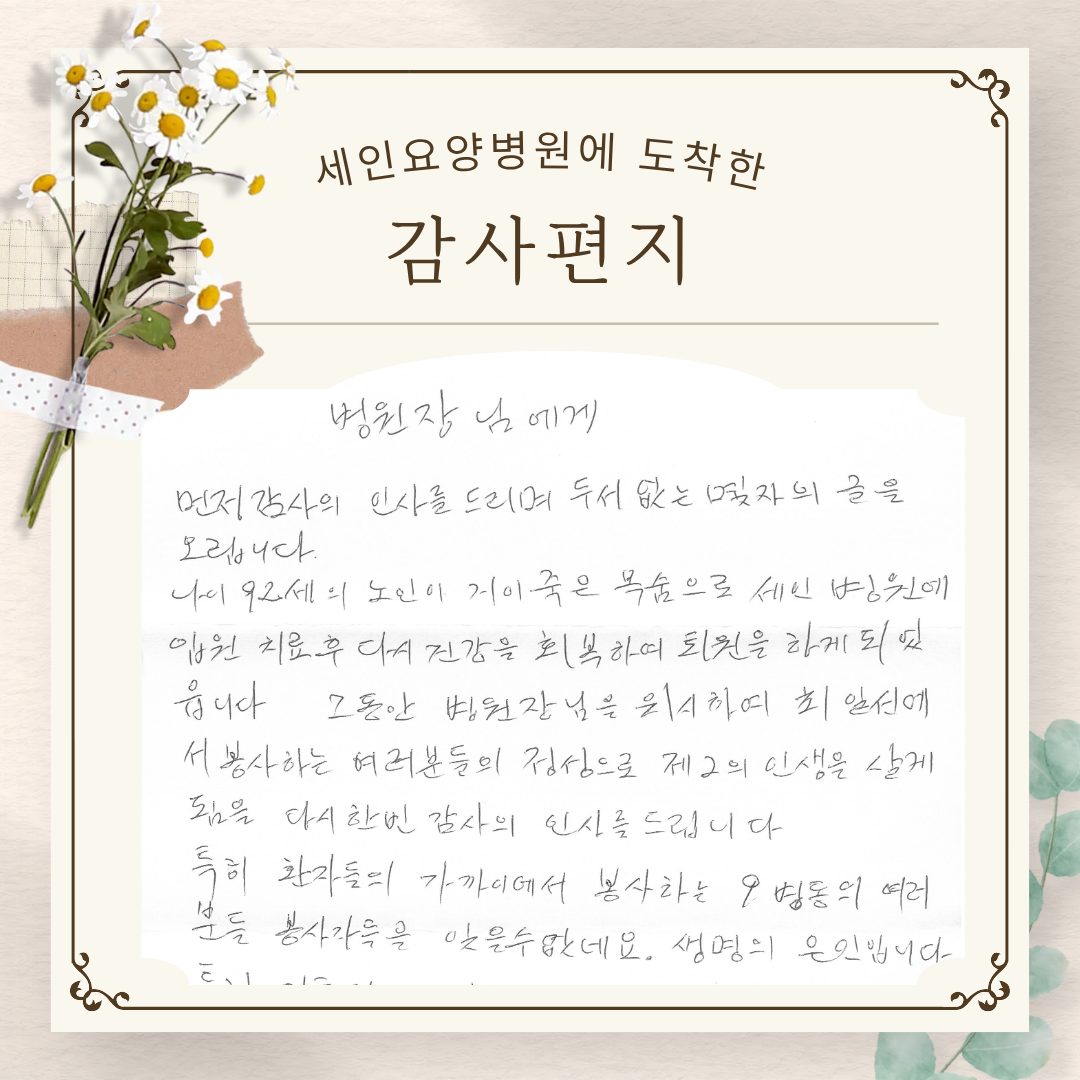 세인요양병원에 도착한
감사편지
병원장 님 에게
먼저 감사의 인사를 드리며 두서 없는 몇자의 글을
오립니다.
나이 92세의 노인이 거이 죽은 목숨으로 세인 병원에
입원 치료후 다시 건강을 회복하여 퇴원을 하게 되었
읍니다 그동안 병원장님을 위시하여 최 일선에
서 봉사하는 여러분들의 정성으로 제2의 인생을 살게
됨을 다시한번 감사의 인사를 드립니다
특히 환자들의 가까이에서 봉사하는 9 병동의 여러
분들 봉사자들을 잊을수없네요. 생명의 은인입니다